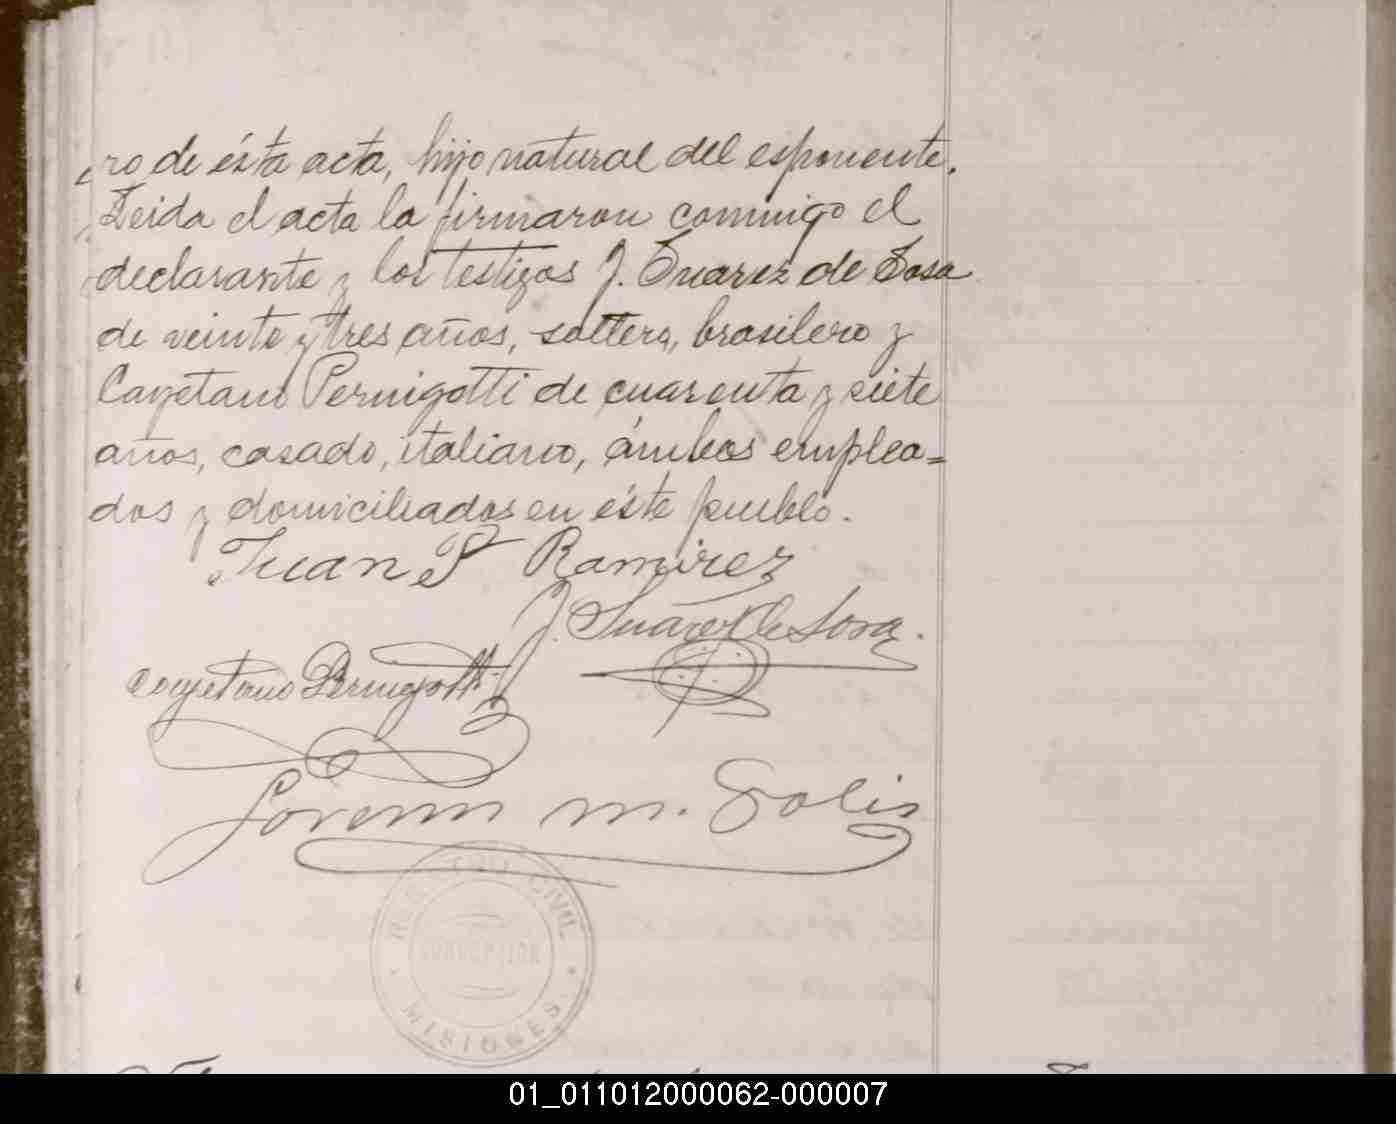 ro de ésta acta, hijo natural del esponente.
Leida el acta la firmaron conmigo el
declarante y los testigos J. Suarez de Sosa
de veinte y tres años, soltero, brasilero y
Cayetano Pernigotti de cuarenta y siete
años, casado, italiano, ámbos emplea=
dos y domiciliados en éste pueblo.
Juan P Ramirez
J. Suarez de Sosa.
Cayetano Pernigotti
Lorenzo M. Solis
REGISTRO CIVIL
CONCEPCION
MISIONES
01_011012000062-000007